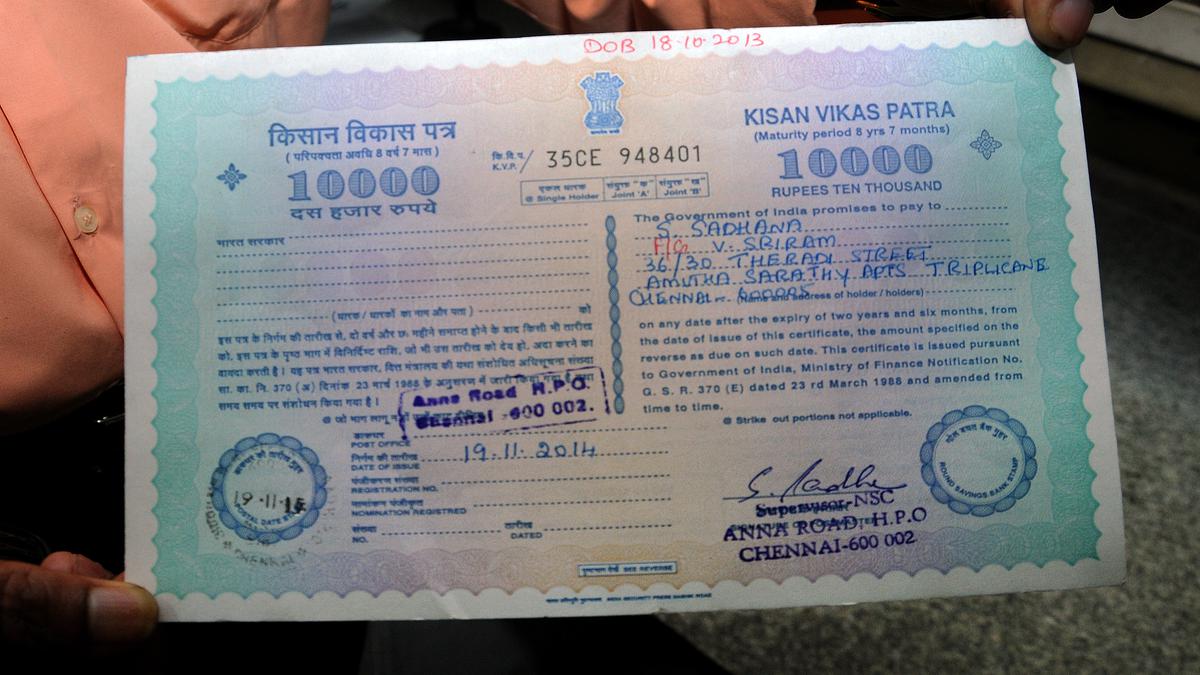 DOB 18-10-2013
किसान विकास पत्र
( परिपक्वता अवधि 8 वर्ष 7 मास )
10000
दस हजार रुपये
कि.वि.प./
K.V.P.
35CE 948401
एकल धारक
@ Single Holder
संयुक्त "क"
Joint 'A'
संयुक्त "ख"
Joint 'B'
KISAN VIKAS PATRA
(Maturity period 8 yrs 7 months)
10000
RUPEES TEN THOUSAND
भारत सरकार
( धारक / धारकों का नाम और पता ) को
इस पत्र के निर्गम की तारीख से, दो वर्ष और छः महीने समाप्त होने के बाद किसी भी तारीख
को, इस पत्र के पृष्ठ भाग में विनिर्दिष्ट राशि, जो भी उस तारीख को देय हो, अदा करने का
वायदा करती है। यह पत्र भारत सरकार, वित्त मंत्रालय की यथा संशोधित अधिसूचना संख्या
सा. का. नि. 370 (अ) दिनांक 23 मार्च 1988 के अनुसरण में जारी किया गया है तथा
समय समय पर संशोधन किया गया है।
@ जो भाग लागू
The Government of India promises to pay to
S. SADHANA
F/G V. SRIRAM
36/30 THERADI STREET
AMUTHA SARATHY APTS TRIPLICANE
CHENNAI - 600005
(Name and address of holder / holders)
on any date after the expiry of two years and six months, from
the date of issue of this certificate, the amount specified on the
reverse as due on such date. This certificate is issued pursuant
to Government of India, Ministry of Finance Notification No.
G. S. R. 370 (E) dated 23 rd March 1988 and amended from
time to time.
@ Strike out portions not applicable.
Anna Road H.P.O.
Chennai -600 002.
डाकघर
POST OFFICE
निर्गम की तारीख
DATE OF ISSUE
19.11.2014
पंजीकरण संख्या
REGISTRATION NO.
नामांकन पंजीकृत
NOMINATION REGISTRED
संख्या
NO.
तारीख
DATED
19-11-
CHENNAI
S. Radha
Supervisor-NSC
ANNA ROAD, H.P.O
CHENNAI-600 002
गोल बचत बैंक मुहर
ROUND SAVINGS BANK STAMP
पृष्ठभाग देखें SEE REVERSE